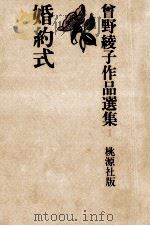 曾野綾子作品選集
婚約式
桃源社版
www.toutu001.com